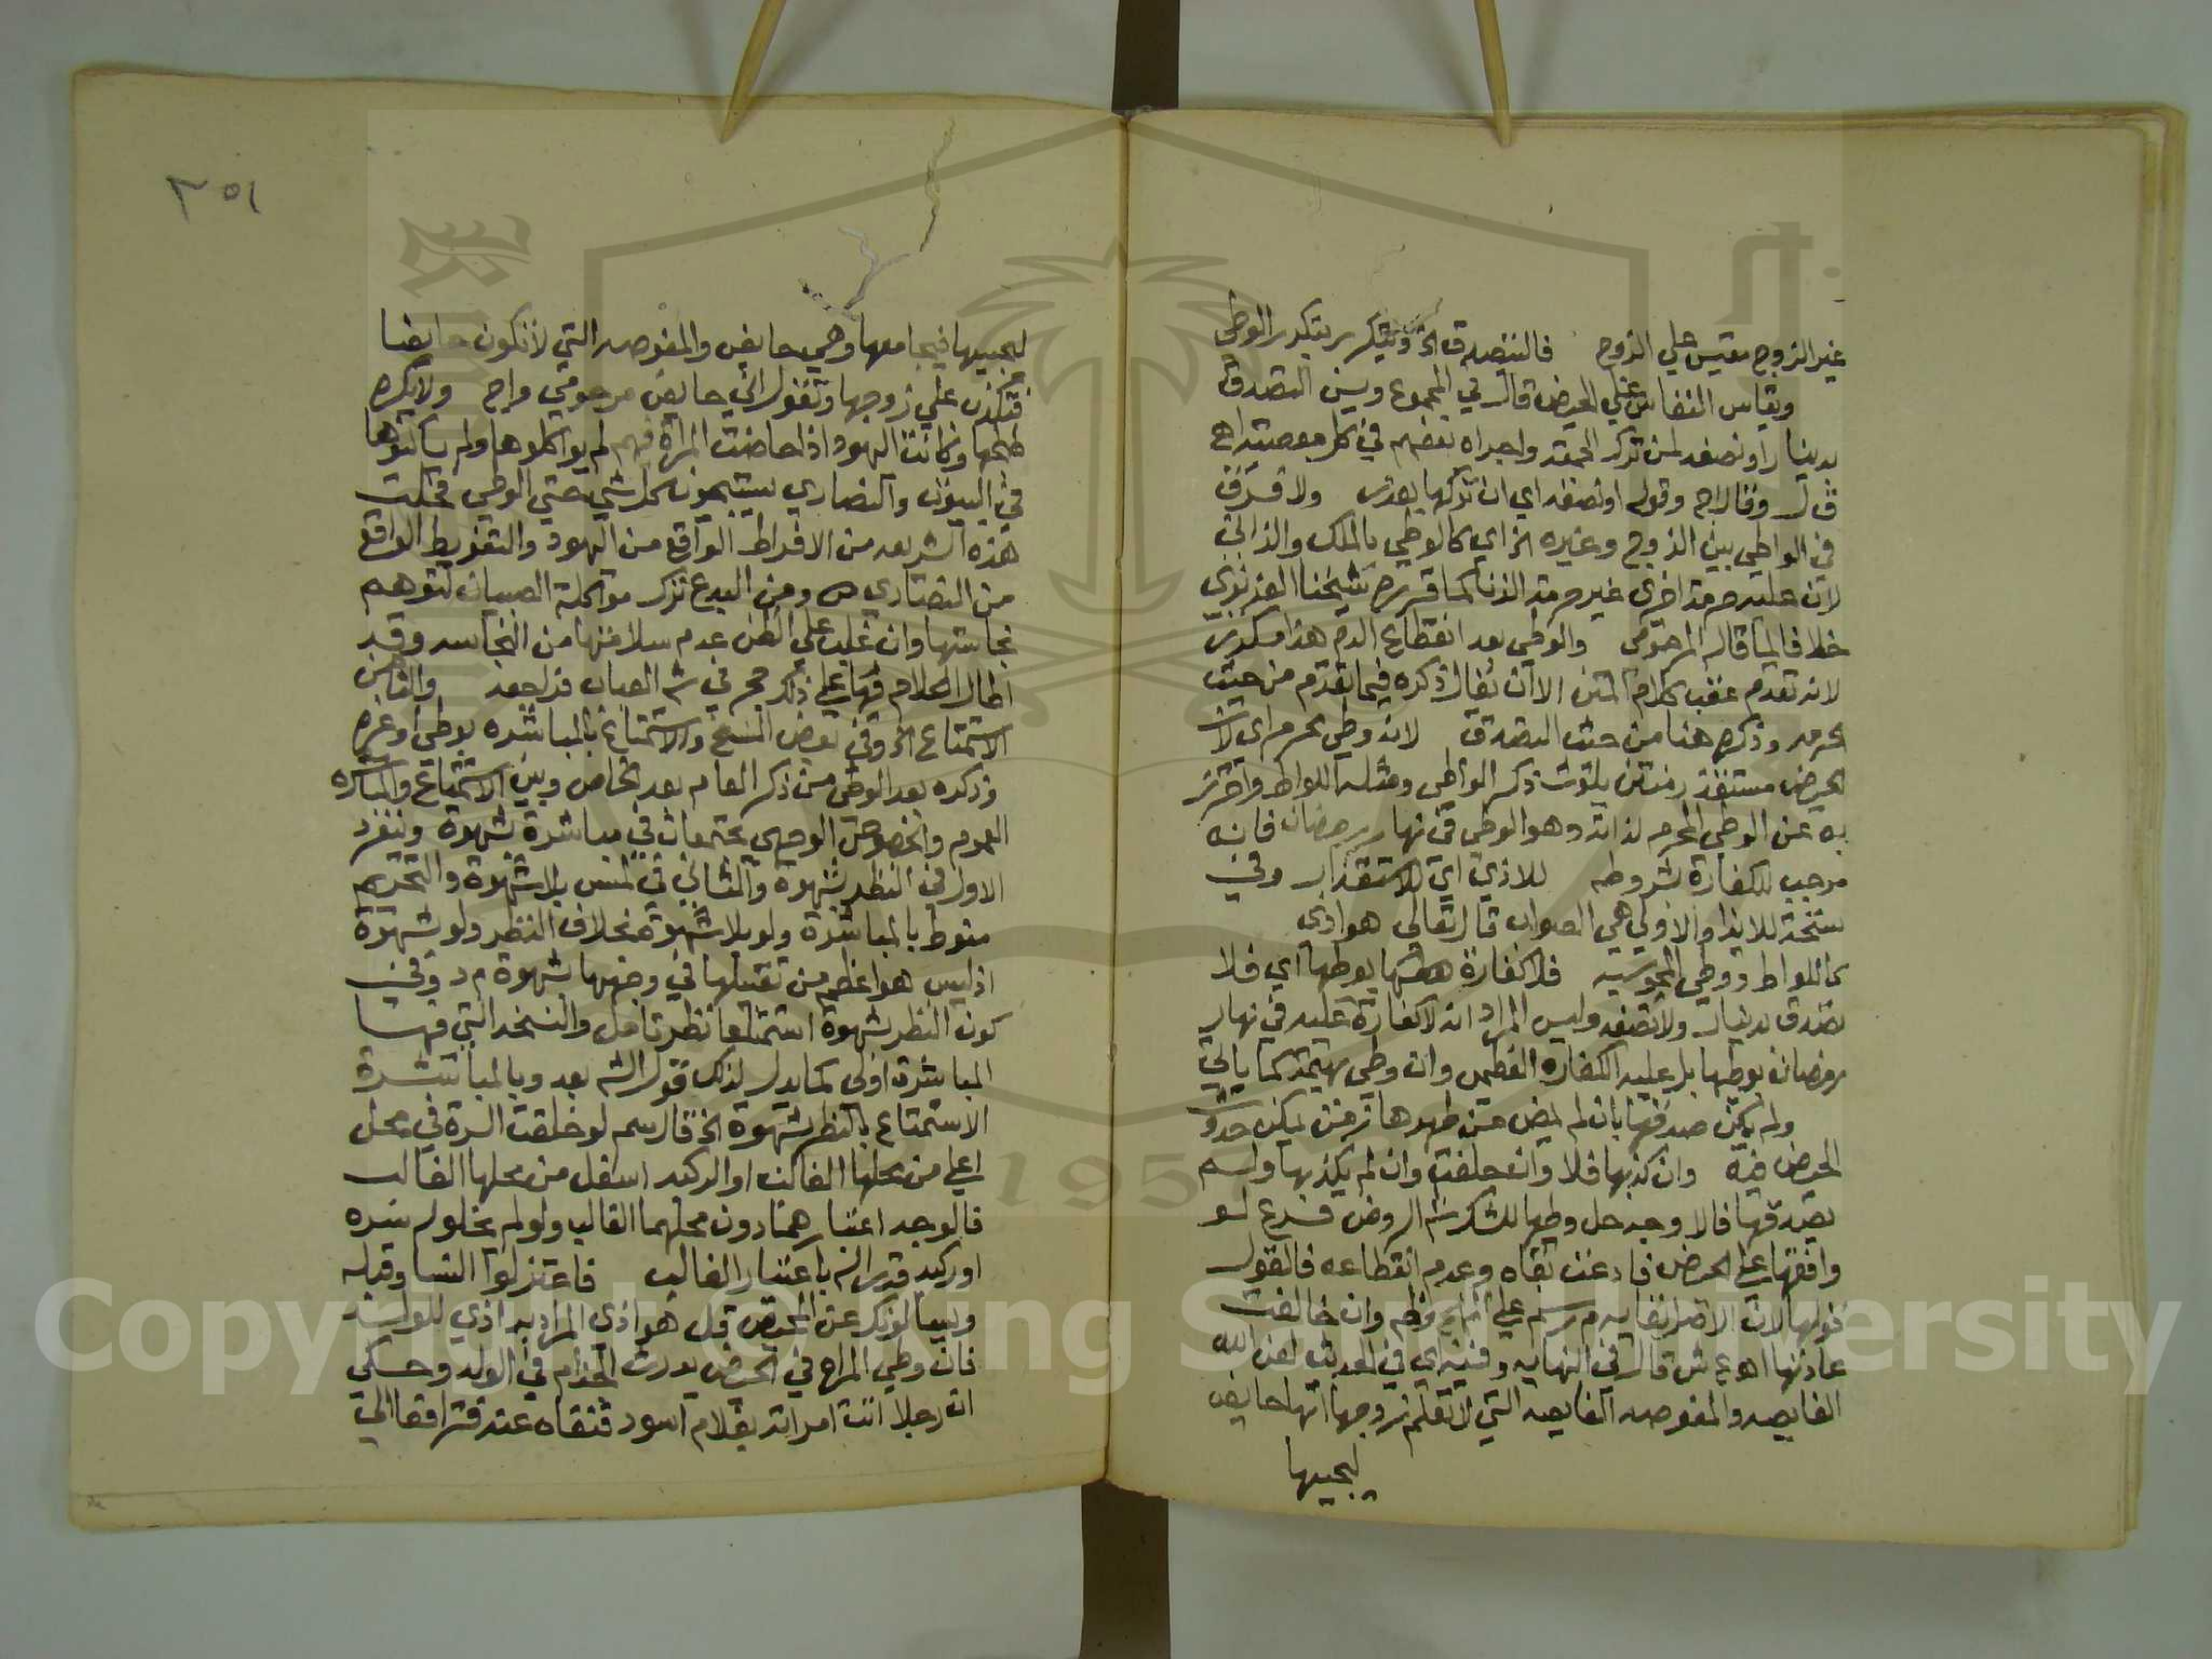 غير الزوج مقيس علي الزوج فالتصدق الخ ويتكرر بتكرر الوطى
ويقاس النفاس علي الحيض قال في المجموع ويسن التصدق
بدينار او نصفه لمن ترك الجمعة واجراه بعضهم في كل معصية اهـ
قال وقوله او نصفه اي ان تركها بعذر ولا فرق
في الواطي بين الزوج وغيره الخ اي كالوطي بالملك والزاني
لان عليه حرمة اخرى غير حرمة الزنا كما قرره شيخنا العزيزي
خلافا لما قاله المرحومي والوطى بعد انقطاع الدم هذا مكرر
لانه تقدم عقب كلام المتن الا ان يقال ذكره فيما تقدم من حيث
الحرمة وذكره هنا من حيث التصدق لانه وطي محرم اي لان
الحيض مستقذر منتن يلوث ذكر الواطى ومثله اللواط واحترز
به عن الوطى المحرم لذاته وهو الوطي في نهار رمضان فانه
موجب للكفارة بشروطه للاذي اي للاستقذار وفي
نسخة للايذا والاولي هي الصواب قال تعالى هو اذى
كاللواط ووطي المجوسيه فلا كفارة بوطيها اي فلا
تصدق بدينار ولا نصفه وليس المراد انه لا كفارة عليه في نهار
رمضان بوطيها بل عليه الكفاره العظمى وان وطي بهيمة كما ياتي
ولم يمكن صدقها بان لم يمض من طهرها زمن يمكن حدوث
الحيض فيه وان كذبها فلا وان حلفت وان لم يكذبها ولم
يصدقها فالاوجه حل وطيها للشك شـ الروض فرع لو
وافقها علي الحيض فادعت بقاه وعدم انقطاعه فالقول
قولها لان الاصل بقاؤه م ر سم علي وان خالفت
عادتها اهـ ع ش قال في النهايه وفي الحديث لعن الله
الغايصه والمغوصه الغايصه التي لا تعلم زوجها انها حايض
ليجيبها
٢٥١
ليجيبها فيجامعها وهي حايض والمغوصه التي لا تكون حايضا
فتكذب علي زوجها وتقول اني حايض مرحومي مراح ولا يكره
طبخها وكانت اليهود اذا حاضت المراة فيهم لم يواكلوها ولم يساكنوها
في البيوت والنصاري يستبيحون كل شي حتي الوطي فجات
هذه الشريعه من الافراط الواقع من اليهود والتفريط الواقع
من النصاري ومن البدع ترك مواكلة الصبيان لتوهم
نجاستها وان غلب علي الظن عدم سلامتها من النجاسه وقد
اطال الكلام فيها علي ذلك حجر في شـ العباب فراجعه والثامن
الاستمتاع الخ وفي بعض النسخ والاستمتاع بالمباشره بوطى او غيره
وذكره بعد الوطى من ذكر العام بعد الخاص وبين الاستمتاع والمباشره
العموم والخصوص الوجهى يجتمعان في مباشرة بشهوة وينفرد
الاول في النظر بشهوة والثاني في لمس بلا شهوة والتحريم
منوط بالمباشرة ولو بلا شهوة بخلاف النظر ولو بشهوة
اذ ليس هو اعظم من تقبيلها في وجهها بشهوة م د وفي
كون النظر بشهوة استمتاعا نظر تامل والنسخه التي فيها
المباشرة اولى كما يدل لذلك قول الشـ بعد وبالمباشرة
الاستمتاع بالنظر بشهوة الخ قال سم لو خلقت السرة في محل
اعلي من محلها الغالب او الركبه اسفل من محلها الغالب
فالوجه اعتبارهما دون محلهما الغالب ولو لم يخلق له سره
او ركبه قدر له باعتبار الغالب فاعتزلوا النسا وقبله
ويسالونك عن المحيض قل هو اذى المراد به اذي للولد
فان وطي المراه في الحيض يورث الجذام في الولد وحكي
ان رجلا اتت امراته بغلام اسود فنفاه عنه فترافعا الي